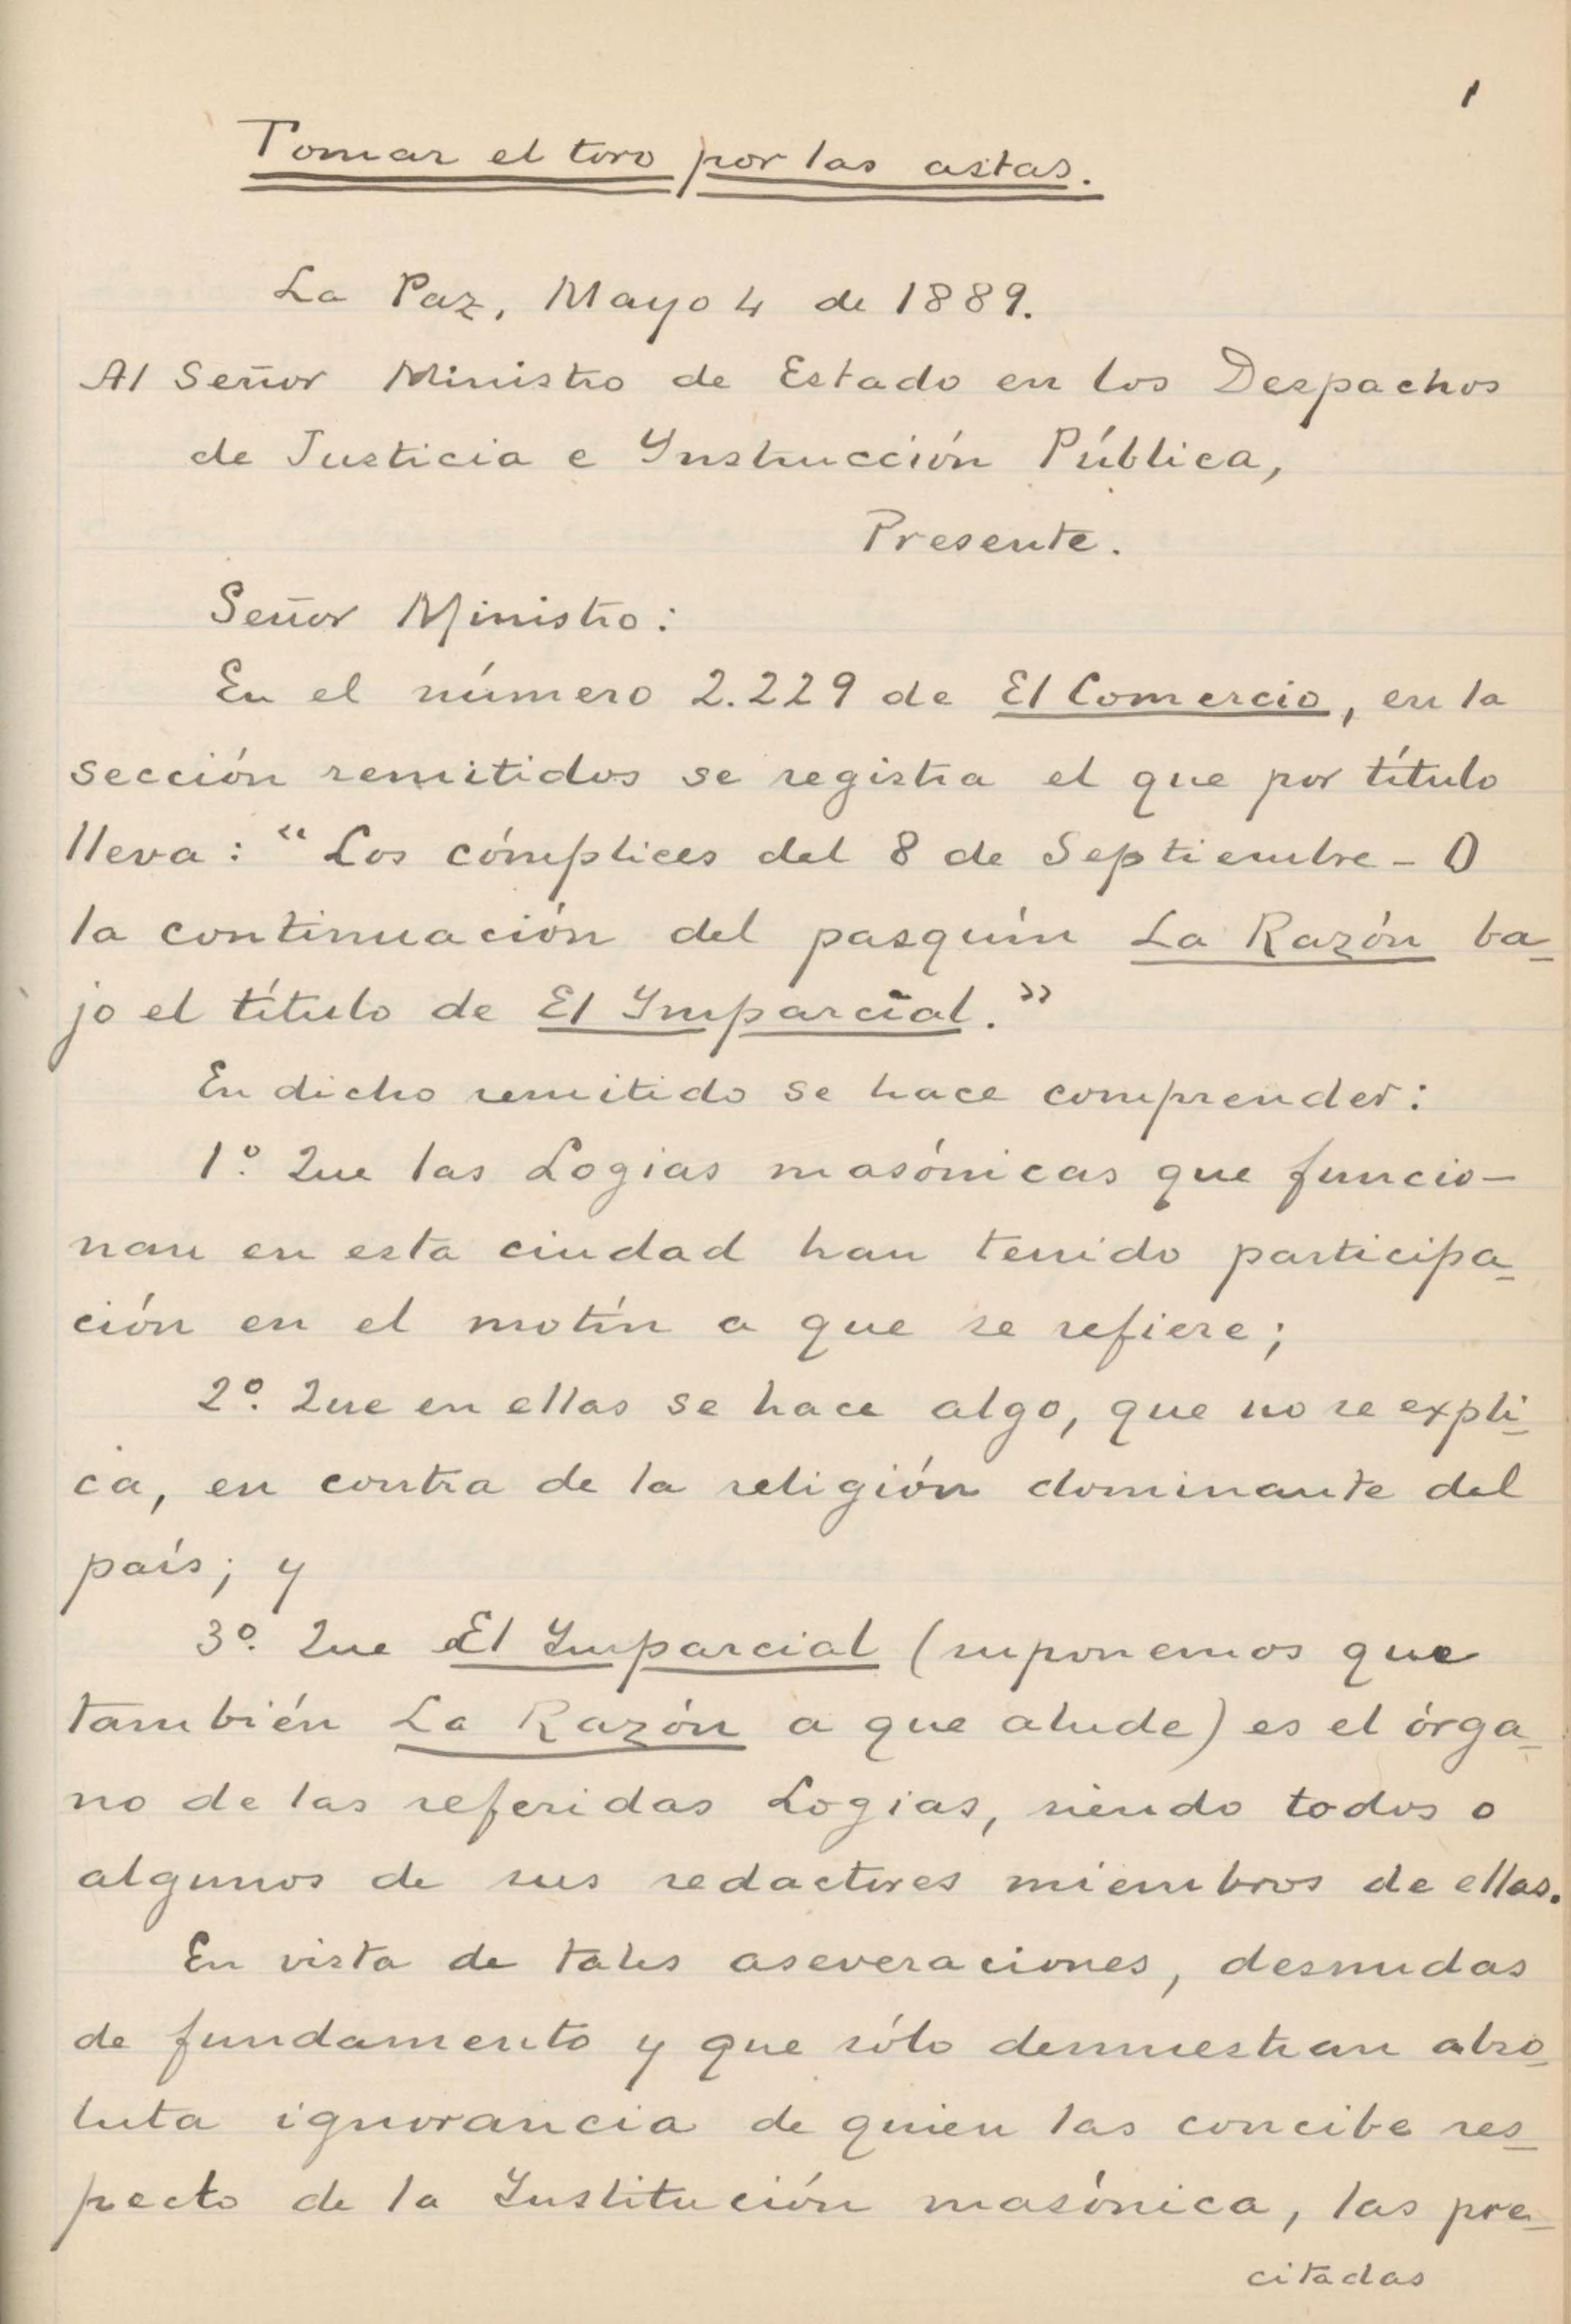 1
Tomar el toro por las astas.
La Paz, Mayo 4 de 1889.
Al Señor Ministro de Estado en los Despachos
de Justicia e Ynstrucción Pública,
Presente.
Señor Ministro:
En el número 2.229 de El Comercio, en la
sección remitidos se registra el que por título
lleva: "Los cómplices del 8 de Septiembre - O
la continuación del pasquín La Razón ba-
jo el título de El Ymparcial."
En dicho remitido se hace comprender:
1º. Que las Logias masónicas que funcio-
nan en esta ciudad han tenido participa-
ción en el motín a que se refiere;
2º. Que en ellas se hace algo, que no se expli-
ca, en contra de la religión dominante del
país; y
3º. Que El Ymparcial (suponemos que
también La Razón a que alude) es el órga-
no de las referidas Logias, siendo todos o
algunos de sus redactores miembros de ellas.
En vista de tales aseveraciones, desnudas
de fundamento y que sólo demuestran abso-
luta ignorancia de quien las concibe res-
pecto de la Ynstitución masónica, las pre-
citadas